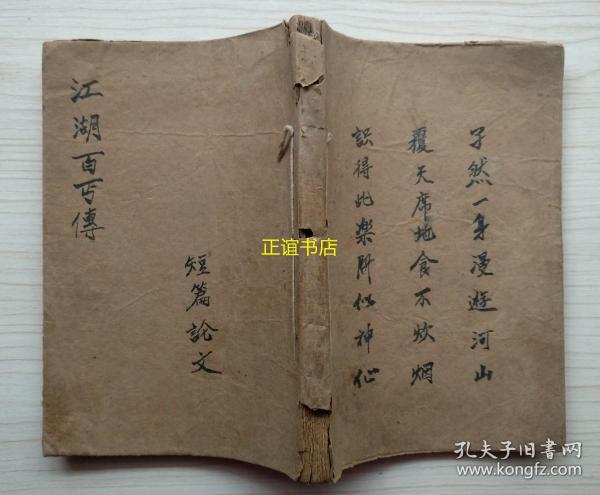 江湖百丐傳
短篇論文
孑然一身漫遊河山
覆天席地食不炊烟
識得此楽勝似神仙
正谊书店
孔夫子旧书网
www.kongfz.com